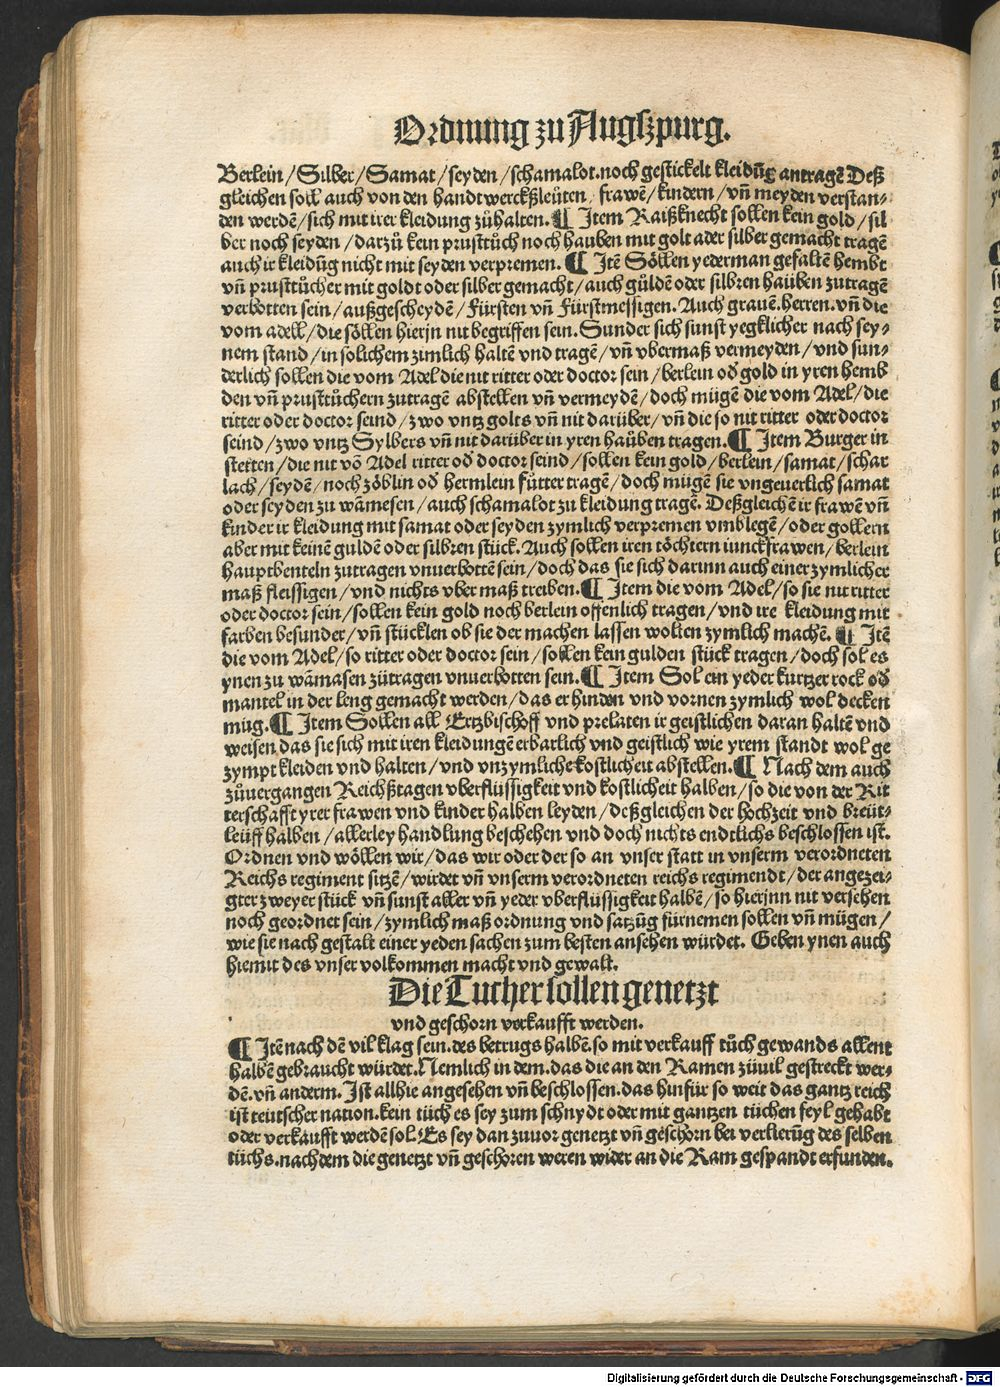 Ordnung zu Augszpurg.
Berlein / Silber / Samat / seyden / schamalot. noch gestickelt kleidūg antragē Deß
gleichen soll auch von den handtwerckßleüten / frawē / kindern / vn̄ meyden verstan-
den werdē / sich mit irer kleidung zůhalten. ¶ Item Raißknecht sollen kein gold / sil
ber noch seyden / darzů kein prusttůch noch hauben mit golt ader silber gemacht tragē
auch ir kleidūg nicht mit seyden verpremen. ¶ Itē Söllen yederman gefaltē hembt
vn̄ prusttůcher mit goldt oder silber gemacht / auch güldē oder silbren hauben zutragē
verbotten sein / außgescheydē / Fürsten vn̄ Fürstmessigen. Auch grauē. herren. vn̄ die
vom adell / die söllen hierjn nit begriffen sein. Sunder sich sunst yegklicher nach sey-
nem stand / in solichem zimlich haltē vnd tragē / vn̄ vbermaß vermeyden / vnd sun-
derlich sollen die vom Adel die nit ritter oder doctor sein / berlein od̄ gold in yren hemb
den vn̄ prusttůchern zutragē abstellen vn̄ vermeydē / doch mügē die vom Adel / die
ritter oder doctor seind / zwo vntz golts vn̄ nit darüber / vn̄ die so nit ritter oder doctor
seind / zwo vntz Sylbers vn̄ nit darüber in yren haüben tragen. ¶ Item Burger in
stetten / die nit vō Adel ritter od̄ doctor seind / sollen kein gold / berlein / samat / schar
lach / seydē / noch zöblin od̄ hermlein fůtter tragē / doch mügē sie vngeuerlich samat
oder seyden zu wāmesen / auch schamalot zu kleidung tragē. Deßgleichē ir frawē vn̄
kinder ir kleidung mit samat oder seyden zymlich verpremen vmblegē / oder gollern
aber mit keinē guldē oder silbren stück. Auch sollen iren töchtern iunckfrawen / berlein
hauptbenteln zutragen vnuerbottē sein / doch das sie sich darinn auch einer zymlicher
maß fleissigen / vnd nichts vber maß treiben. ¶ Item die vom Adel / so sie nit ritter
oder doctor sein / sollen kein gold noch berlein offenlich tragen / vnd ire kleidung mit
farben besunder / vn̄ stücklen ob sie der machen lassen wolten zymlich machē. ¶ Itē
die vom Adel / so ritter oder doctor sein / sollen kein gulden stück tragen / doch sol es
ynen zu wāmasen zütragen vnuerbotten sein. ¶ Item Sol ein yeder kurtzer rock od̄
mantel in der leng gemacht werden / das er hinden vnd vornen zymlich wol decken
müg. ¶ Item Sollen all Ertzbischoff vnd prelaten ir geistlichen daran haltē vnd
weisen das sie sich mit iren kleidungē erbarlich vnd geistlich wie yrem standt wol ge
zympt kleiden vnd halten / vnd vnzymliche kostlicheit abstellen. ¶ Nach dem auch
zůuergangen Reichßtagen vberflüssigkeit vnd kostlicheit halben / so die von der Rit
terschafft yrer frawen vnd kinder halben leyden / deßgleichen der hochzeit vnd breüt-
leüff halben / allerley handlung beschehen vnd doch nichts endtlichs beschlossen ist.
Ordnen vnd wöllen wir / das wir oder der so an vnser statt in vnserm verordneten
Reichs regiment sitzē / wirdet vn̄ vnserm verordneten reichs regimendt / der angezei-
gter zweyer stück vn̄ sunst aller vn̄ yeder vberflüssigkeit halbē / so hierjnn nit versehen
noch geordnet sein / zymlich maß ordnung vnd satzūg fürnemen sollen vn̄ mügen /
wie sie nach gestalt einer yeden sachen zum besten ansehen würdet. Geben ynen auch
hiemit des vnser volkommen macht vnd gewalt.
Die Tucher sollen genetzt
vnd geschorn verkaufft werden.
¶ Itē nach dē vil klag sein. des betrugs halbē. so mit verkauff tůch gewands allent
halbē gebraucht würdet. Nemlich in dem. das die an den Ramen züuil gestreckt wer-
dē. vn̄ anderm. Ist allhie angesehen vn̄ beschlossen. das hinfür so weit das gantz reich
ist teutscher nation. kein tüch es sey zum schnydt oder mit gantzen tüchen feyl gehabt
oder verkaufft werdē sol. Es sey dan zuuor genetzt vn̄ geschorn bei verlierūg des selben
tüchs. nachdem die genetzt vn̄ geschoren weren wider an die Ram gespandt erfunden.
Digitalisierung gefördert durch die Deutsche Forschungsgemeinschaft - DFG